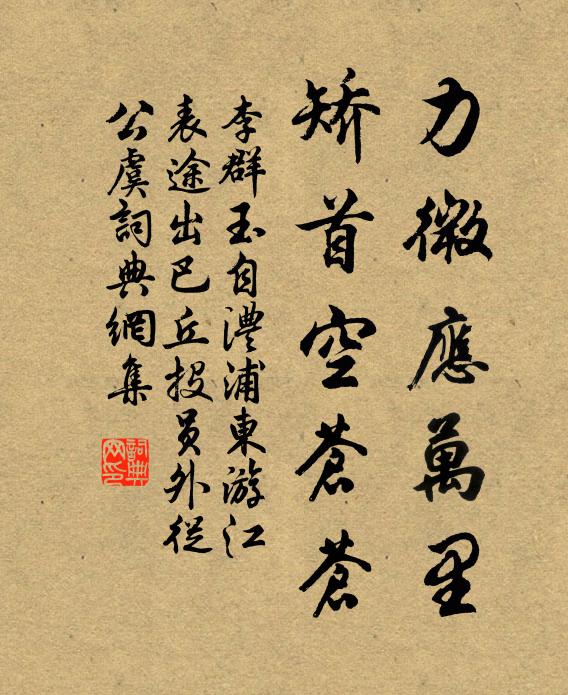 力微應萬里
矯首空蒼蒼
李群玉自澧浦東游江
表途出巴丘投員外從
公虞詞典網集
詞典
网印